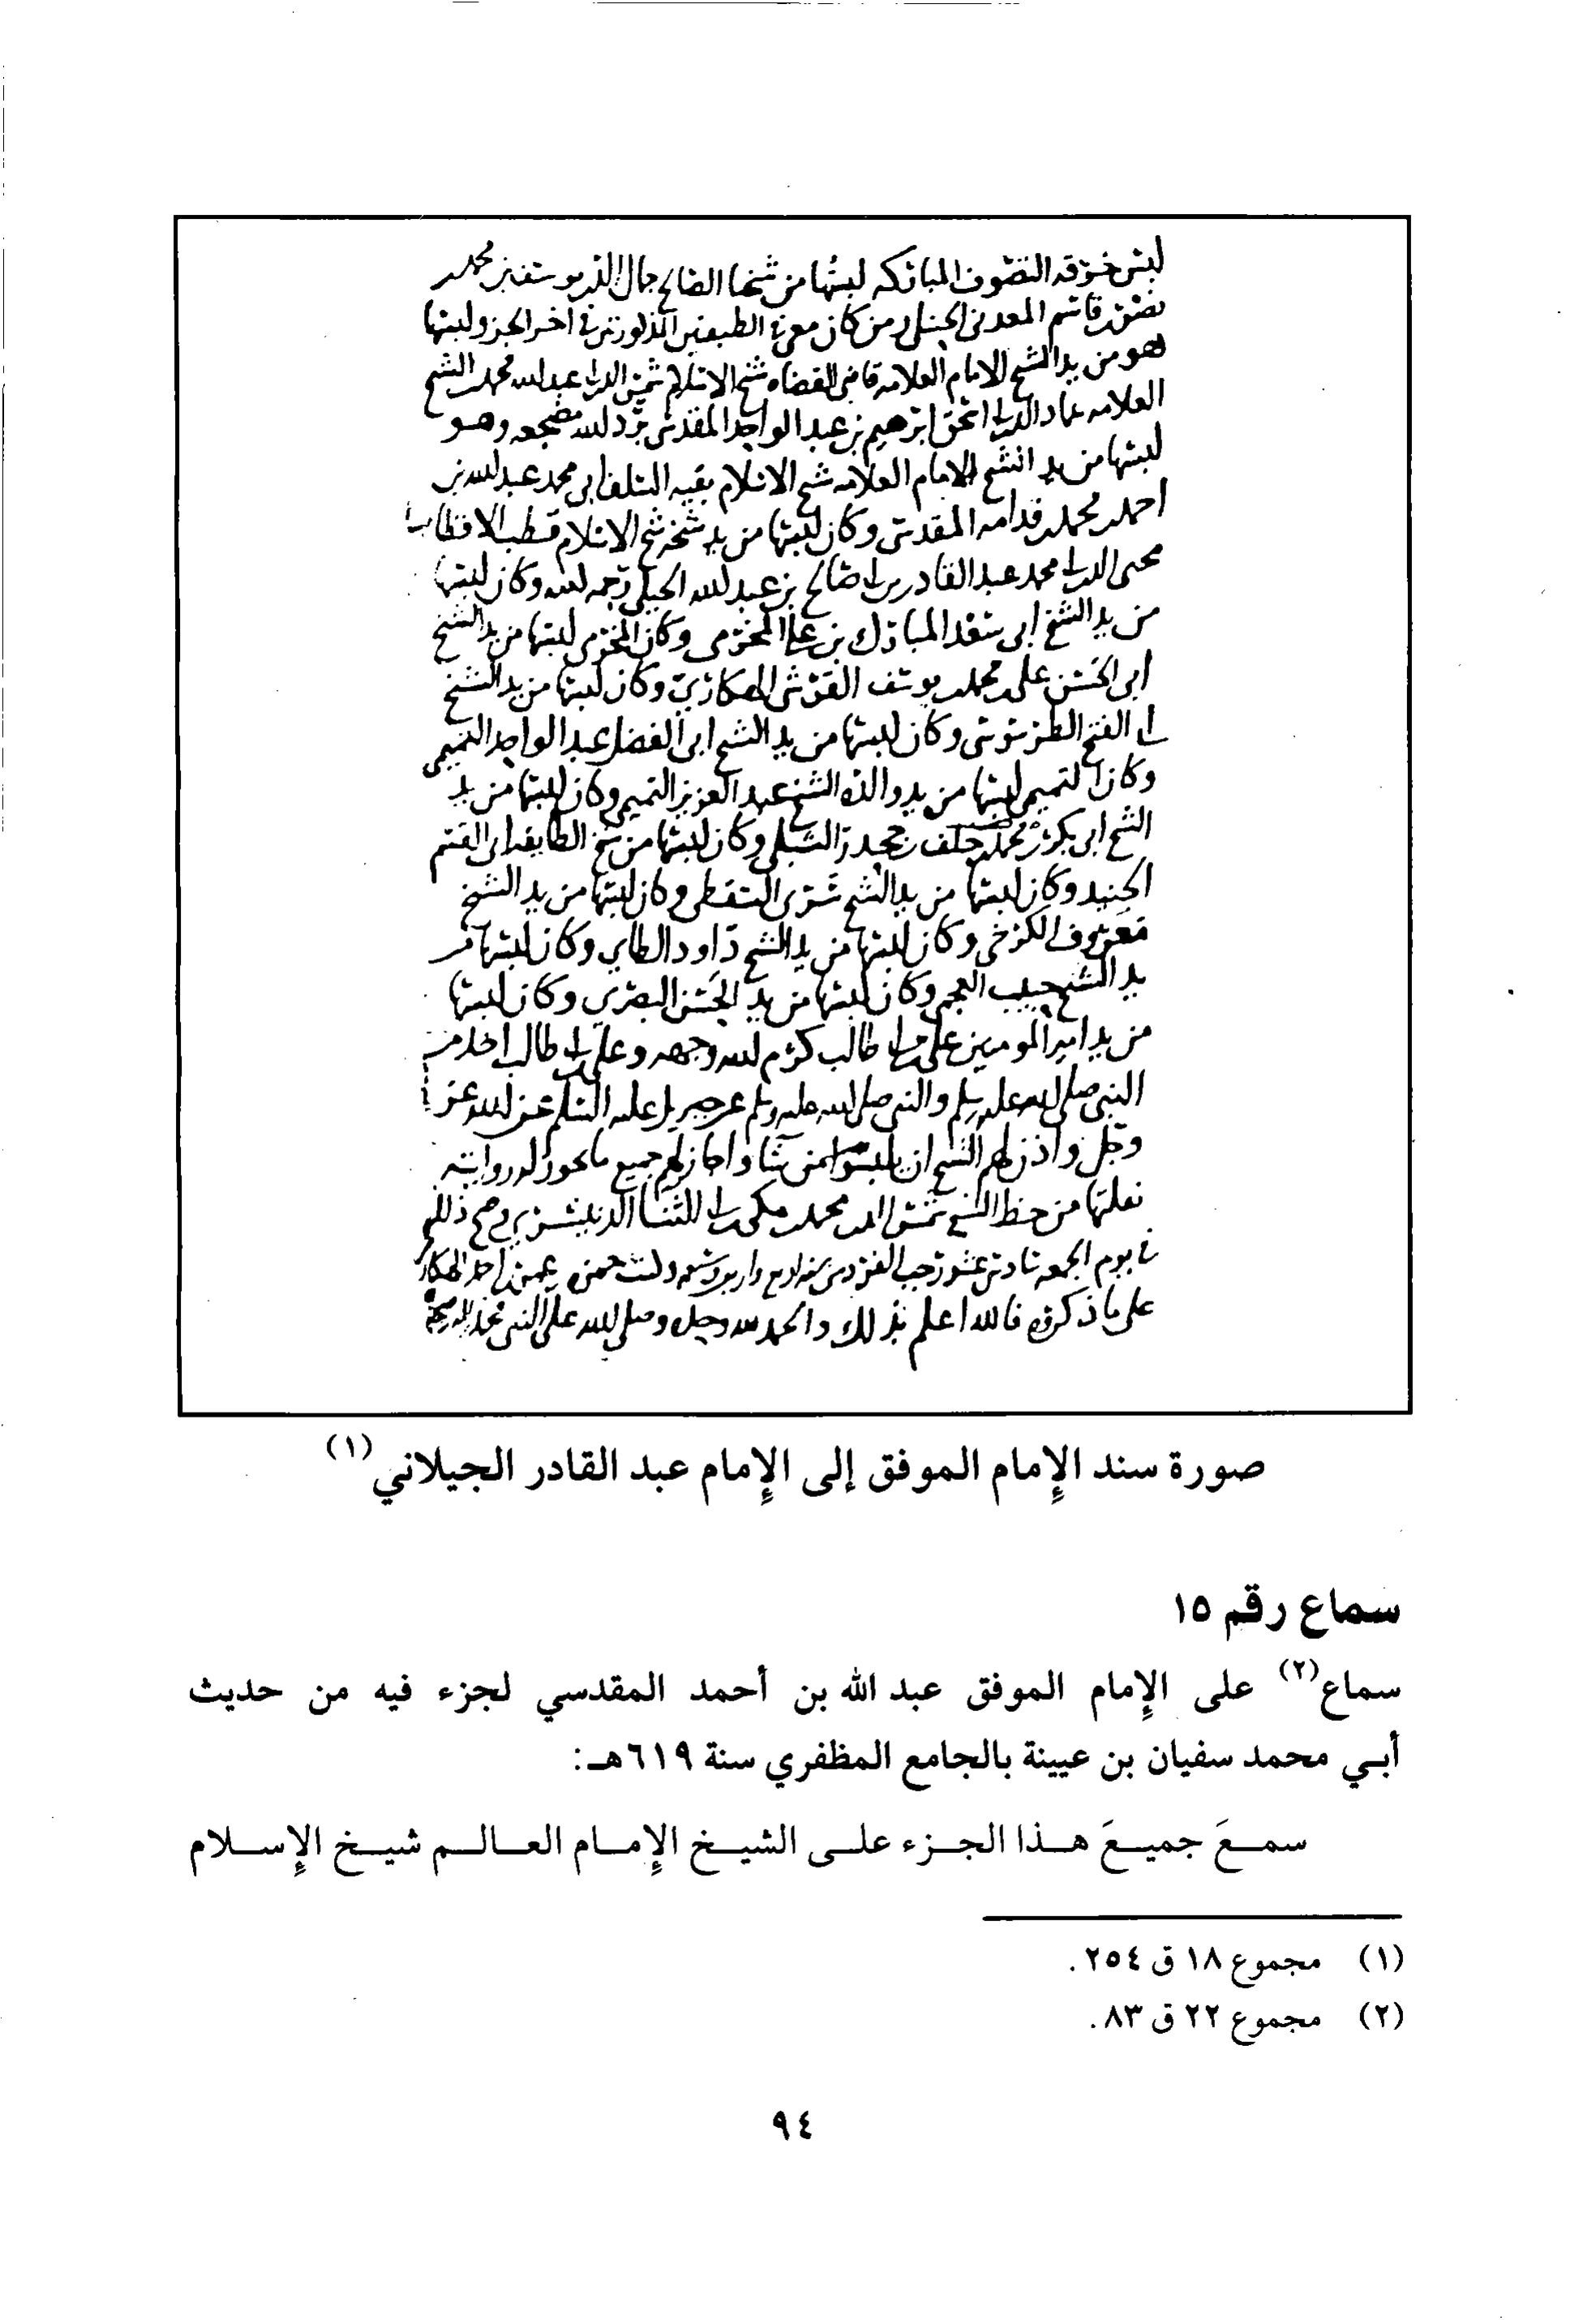 لبس خرقه التصوف المباركه لبسها من شيخنا الصالح جمال الدين يوسف بن محمد بن
نصر بن قاسم المعدني الحنبلي ومن كان معي في الطبقتين المذكورتين في اخر الجزو لبسها
هو من يد الشيخ الامام العلامه قاضي القضاه شيخ الاسلام شمس الدين ابي عبد الله محمد بن الشيخ
العلامه عماد الدين ابي اسحق ابرهيم بن عبد الواحد المقدسي برد الله مضجعه وهو
لبسها من يد الشيخ الامام العلامه شيخ الاسلام بقيه السلف ابي محمد عبد الله بن
احمد بن محمد بن قدامه المقدسي وكان لبسها من يد شيخه شيخ الاسلام قطب الاقطاب
محيي الدين ابي محمد عبد القادر بن ابي صالح بن عبد الله الجيلي رحمه الله وكان لبسها
من يد الشيخ ابي سعد المبارك بن علي المخزمي وكان المخزمي لبسها من يد الشيخ
ابي الحسن علي بن محمد بن يوسف القرشي الهكاري وكان لبسها من يد الشيخ
ابي الفتح الطرسوسي وكان لبسها من يد الشيخ ابي الفضل عبد الواحد التميمي
وكان التميمي لبسها من يد والده الشيخ عبد العزيز التميمي وكان لبسها من يد
الشيخ ابي بكر محمد بن خلف بن جحدر الشبلي وكان لبسها من شيخ الطايفه ابي القسم
الجنيد وكان لبسها من يد الشيخ سري السقطي وكان لبسها من يد الشيخ
معروف الكرخي وكان لبسها من يد الشيخ داود الطاي وكان لبسها من
يد الشيخ حبيب العجمي وكان لبسها من يد الحسن البصري وكان لبسها
من يد امير المومنين علي بن ابي طالب كرم الله وجهه وعلي بن ابي طالب اخذ من
النبي صلى الله عليه وسلم والنبي صلى الله عليه وسلم عن جبريل عليه السلم عن الله عز
وجل واذن لهم الشيخ ان يلبسوا من شا واجاز لهم جميع ما يجوز له روايته
نقلتها من خط الشيخ شمس الدين محمد بن مكي بن ابي الثنا وصح ذلك
في يوم الجمعه سادس عشر رجب الفرد من سنه
على ما ذكروه فالله اعلم بذلك والحمد لله وحده وصلى الله على النبي محمد
صورة سند الإمام الموفق إلى الإمام عبد القادر الجيلاني(١)
سماع رقم ١٥
سماع(٢) على الإمام الموفق عبد الله بن أحمد المقدسي لجزء فيه من حديث
أبي محمد سفيان بن عيينة بالجامع المظفري سنة ٦١٩هـ:
سمعَ جميعَ هذا الجزء على الشيخ الإمام العالم شيخ الإسلام
(١) مجموع ١٨ ق ٢٥٤.
(٢) مجموع ٢٢ ق ٨٣.
٩٤